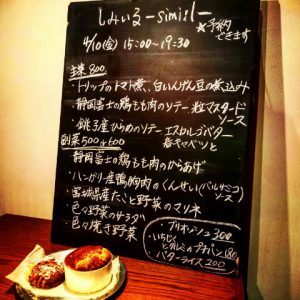 しみいる -simi:l-
★予約できます
4/10(金) 15:00〜19:30
主菜 800
・トリップのトマト煮、白いんげん豆の煮込み
・静岡富士の鶏もも肉のソテー 粒マスタードソース
・銚子産ひらめのソテー エスカルゴバター
春キャベツと
副菜 500 & 600
・静岡富士の鶏もも肉のからあげ
・ハンガリー産鴨胸肉のくんせい(バルサミコソース)
・宮城県産たこと野菜のマリネ
・色々野菜のサラダ
・色々焼き野菜
・ブリオッシュ 300
・いちじくとクルミのプチパン 180
・バターライス 200